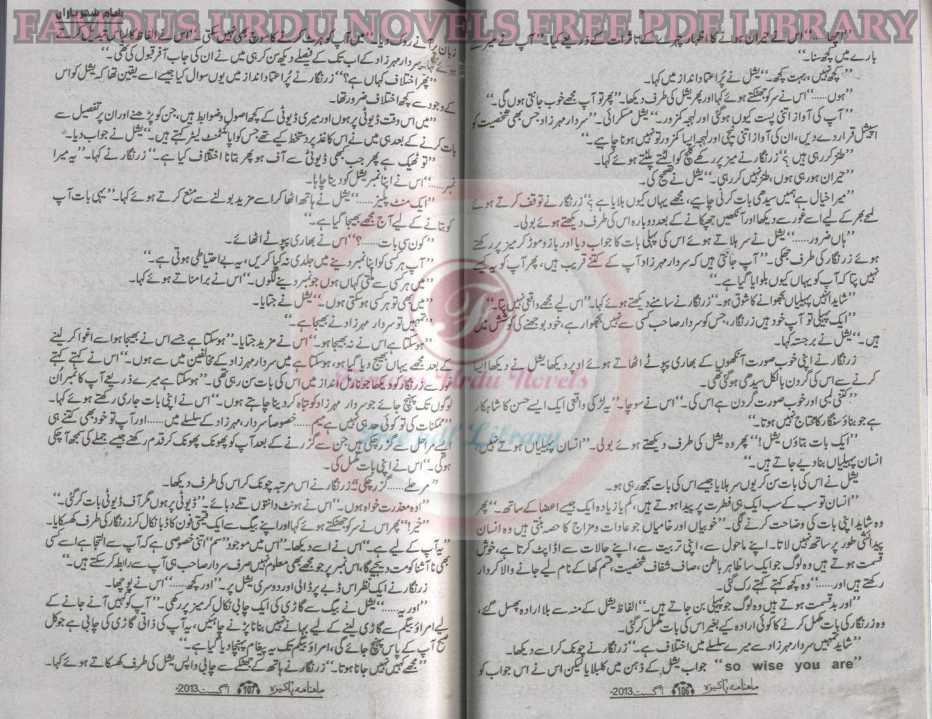 FAMOUS URDU NOVELS FREE PDF LIBRARY
بارے میں کچھ سنا۔"
"کچھ نہیں، بہت کچھ۔" یشل نے پُراعتماد انداز میں کہا۔
"ہوں......" اس نے سر کو جھٹکتے ہوئے کہا اور پھر یشل کی طرف دیکھا۔ "پھر تو آپ مجھے خوب جانتی ہوں گی۔"
"آپ کی آواز اتنی پست کیوں ہو گئی اور لہجہ کمزور۔" یشل مسکرائی۔ "سردار مہرزاد جس بھی شخصیت کو
اسپیشل قرار دے دیں، ان کی آواز اتنی نیچی اور لہجہ ایسا کمزور تو نہیں ہونا چاہیے۔"
"طنز کر رہی ہیں؟" زرنگار نے میز پر رکھے کو الٹتے پلٹتے ہوئے کہا۔
"حیران ہو رہی ہوں، طنز نہیں کر رہی۔" یشل نے تصحیح کی۔
"میرا خیال ہے ہمیں سیدھی بات کرنی چاہیے، مجھے یہاں کیوں بلایا ہے؟" زرنگار نے توقف کرتے ہوئے
لمحے بھر کے لیے اسے غور سے دیکھا اور آنکھیں جھپکانے کے بعد دوبارہ اس کی طرف دیکھتے ہوئے بولی۔
"ہاں ضرور......" یشل نے سر ہلاتے ہوئے اس کی پہلی بات کا جواب دیا اور بازو موڑ کر میز پر رکھتے
ہوئے زرنگار کی طرف جھکی۔ "آپ جانتی ہیں کہ سردار مہرزاد آپ کے کتنے قریب ہیں، پھر آپ کو یہ کیسے
نہیں پتا کہ آپ کو یہاں کیوں بلوایا گیا ہے۔"
"شاید انہیں پہیلیاں بجھوانے کا شوق ہو۔" زرنگار نے سامنے دیکھتے ہوئے کہا۔ "اس لیے مجھے واقعی نہیں پتا۔"
"ایک پہیلی تو آپ خود ہیں زرنگار، جس کو سردار صاحب کسی سے نہیں بجھوا رہے، خود بوجھنے کی کوشش میں
ہیں۔" یشل نے برجستہ کہا۔
زرنگار نے اپنی خوب صورت آنکھوں کے بھاری پپوٹے اٹھاتے ہوئے اوپر دیکھا یشل نے دیکھا ایسا
کرنے سے اس کی گردن بالکل سیدھی ہو گئی تھی۔
"کتنی لمبی اور خوب صورت گردن ہے اس کی۔" اس نے سوچا۔ "یہ لڑکی واقعی ایک ایسے حسن کا شاہکار
ہے جو بناؤ سنگار کا محتاج نہیں ہوتا۔"
"ایک بات بتاؤں یشل!" پھر وہ یشل کی طرف دیکھتے ہوئے بولی۔ "انسان پہیلیاں ہوتے نہیں
انسان پہیلیاں بنا دیے جاتے ہیں۔"
یشل نے اس کی بات سن کر یوں سر ہلایا جیسے اس کی بات سمجھ رہی ہو۔
"انسان تو سب کے سب ایک ہی فطرت پر پیدا ہوتے ہیں، کم یا زیادہ ایک جیسے اعضا کے ساتھ۔" پھر
وہ شاید اپنی بات کی وضاحت کرنے لگی۔ "خوبیاں اور خامیاں جو عادات و مزاج کا حصہ بنتی ہیں وہ انسان
پیدائشی طور پر ساتھ نہیں لاتا۔ اپنے ماحول سے، اپنی تربیت سے، اپنے حالات سے اڈاپٹ کرتا ہے، خوش
قسمت ہوتے ہیں وہ لوگ جو ایک سا ظاہر باطن، صاف شفاف شخصیت، جسم کھا کے نام لیے جانے والا کردار
رکھتے ہیں اور......" وہ کچھ کہتے کہتے رک گئی۔
"اور بدقسمت ہوتے ہیں وہ لوگ جو پہیلی بن جاتے ہیں۔" الفاظ یشل کے منہ سے بلا ارادہ پھسل گئے،
وہ زرنگار کی بات مکمل کرنے کا کوئی ارادہ کیے بغیر اس کی بات مکمل کر گئی۔
"شاید تمہیں سردار مہرزاد سے میرے سلسلے میں اختلاف ہے۔" زرنگار نے چونک کر اسے دیکھا۔
"so wise you are" جواب یشل کے ذہن میں کلبلایا لیکن اس نے اس جواب کو
ماہنامہ پاکیزہ 106 اگست 2013ء
زبان پر آنے سے روک دیا۔
سردار مہرزاد کے اب تک کے فیصلے دیکھ سن کر ہی میں نے ان کی جاب آفر قبول کی تھی۔"
"پھر اختلاف کہاں ہے؟" زرنگار نے پُراعتماد انداز میں یوں سوال کیا جیسے اسے یقین تھا کہ یشل کو اس
کے وجود سے کچھ اختلاف ضرور تھا۔
"میں اس وقت ڈیوٹی پر ہوں اور میری ڈیوٹی کے کچھ اصول و ضوابط ہیں، جن کو پڑھنے اور ان پر تفصیل سے
بات کرنے کے بعد ہی میں نے اس کاغذ پر دستخط کیے تھے جس کو اپائنٹمنٹ لیٹر کہتے ہیں۔" یشل نے جواب دیا۔
"تو ٹھیک ہے پھر جب کبھی ڈیوٹی سے آف ہو پھر بتانا اختلاف کیا ہے۔" زرنگار نے کہا۔ "یہ میرا
نمبر......" اس نے اپنا نمبر یشل کو دینا چاہا۔
"ایک منٹ پلیز......" یشل نے ہاتھ اٹھا کر اسے مزید بولنے سے منع کرتے ہوئے کہا۔ "یہی بات آپ
کو بتانے کے لیے آج مجھے بھیجا گیا ہے۔"
"کون سی بات......؟" اس نے بھاری پپوٹے اٹھائے۔
"آپ ہر کسی کو اپنا نمبر دینے میں جلدی نہ کیا کریں، یہ بے احتیاطی ہوتی ہے۔"
"میں ہر کسی سے ملتی کہاں ہوں جو نمبر دینے لگوں۔" اس نے برا مناتے ہوئے کہا۔
"میں بھی تو ہر کسی ہو سکتی ہوں۔" یشل نے جتایا۔
"تمہیں تو سردار مہرزاد نے بھیجا ہے۔"
"ہو سکتا ہے اس نے نہ بھیجا ہو۔" اس نے مزید جتایا۔ "ہو سکتا ہے جسے اس نے بھیجا ہو اسے اغوا کر لینے
کے بعد مجھے یہاں بھیج دیا گیا ہو، ہو سکتا ہے میں سردار مہرزاد کے مخالفین میں سے ہوں۔" اس نے کہتے کہتے
"ہو سکتا ہے میرے ذریعے آپ کا نمبر ان
لوگوں تک پہنچ جائے جو سردار مہرزاد کو تباہ کر دینا چاہتے ہوں۔" اس نے اپنی بات جاری رکھتے ہوئے کہا۔
"ممکنات کی تو کوئی حد ہی نہیں ہے میم...... خصوصاً سردار مہرزاد کے سلسلے میں......اور آپ تو خود بھی کتنے ہی
ایسے مراحل سے گزر چکی ہیں، جن سے گزرنے کے بعد آپ کو پھونک پھونک کر قدم رکھنے جیسے جملے کی سمجھ آ چکی
ہو گی۔" اس نے اپنی بات مکمل کی۔
"مرحلے...... گزر چکی؟" زرنگار نے اس مرتبہ چونک کر اس کی طرف دیکھا۔
"اوہ معذرت خواہ ہوں۔" اس نے ہونٹ دانتوں تلے دبائے۔ "ڈیوٹی پر ہوں مگر آف ڈیوٹی بات کر گئی۔"
"خیر!" پھر اس نے سر کو جھٹکتے ہوئے کہا اور اپنے بیگ سے ایک قیمتی فون کا ڈبا نکال کر زرنگار کی طرف کھسکایا۔
"یہ آپ کے لیے ہے۔" اس نے اسے دیکھا۔ "اس میں موجود "سم" اتنی خصوصی ہے کہ آپ سے التجا ہے اسے کسی
بھی نا آشنا کو مت دیجیے گا، اس نمبر پر جو مجھے بھی معلوم نہیں صرف سردار صاحب ہی آپ سے رابطہ کر سکتے ہیں۔"
زرنگار نے ایک نظر اس ڈبے پر ڈالی اور دوسری یشل پر۔ "اور کچھ......" اس نے پوچھا۔
"اور یہ......" یشل نے بیگ سے گاڑی کی ایک چابی نکال کر میز پر رکھی۔ "آپ کو کہیں آنے جانے کے
لیے امراؤ بیگم سے گاڑی لینے کے لیے بہانے نہیں بنانا پڑنے چاہئیں، یہ آپ کی ذاتی گاڑی کی چابی ہے جو کل
صبح آپ کے پاس پہنچ جائے گی، امراؤ بیگم تک یہ پیغام پہنچا دیا گیا ہے۔"
"مجھے کہیں نہیں جانا ہوتا۔" زرنگار نے ہاتھ کے جھٹکے سے چابی واپس یشل کی طرف کھسکاتے ہوئے کہا۔
ماہنامہ پاکیزہ 107 اگست 2013ء
Famous Urdu Novels
Free pdf Library